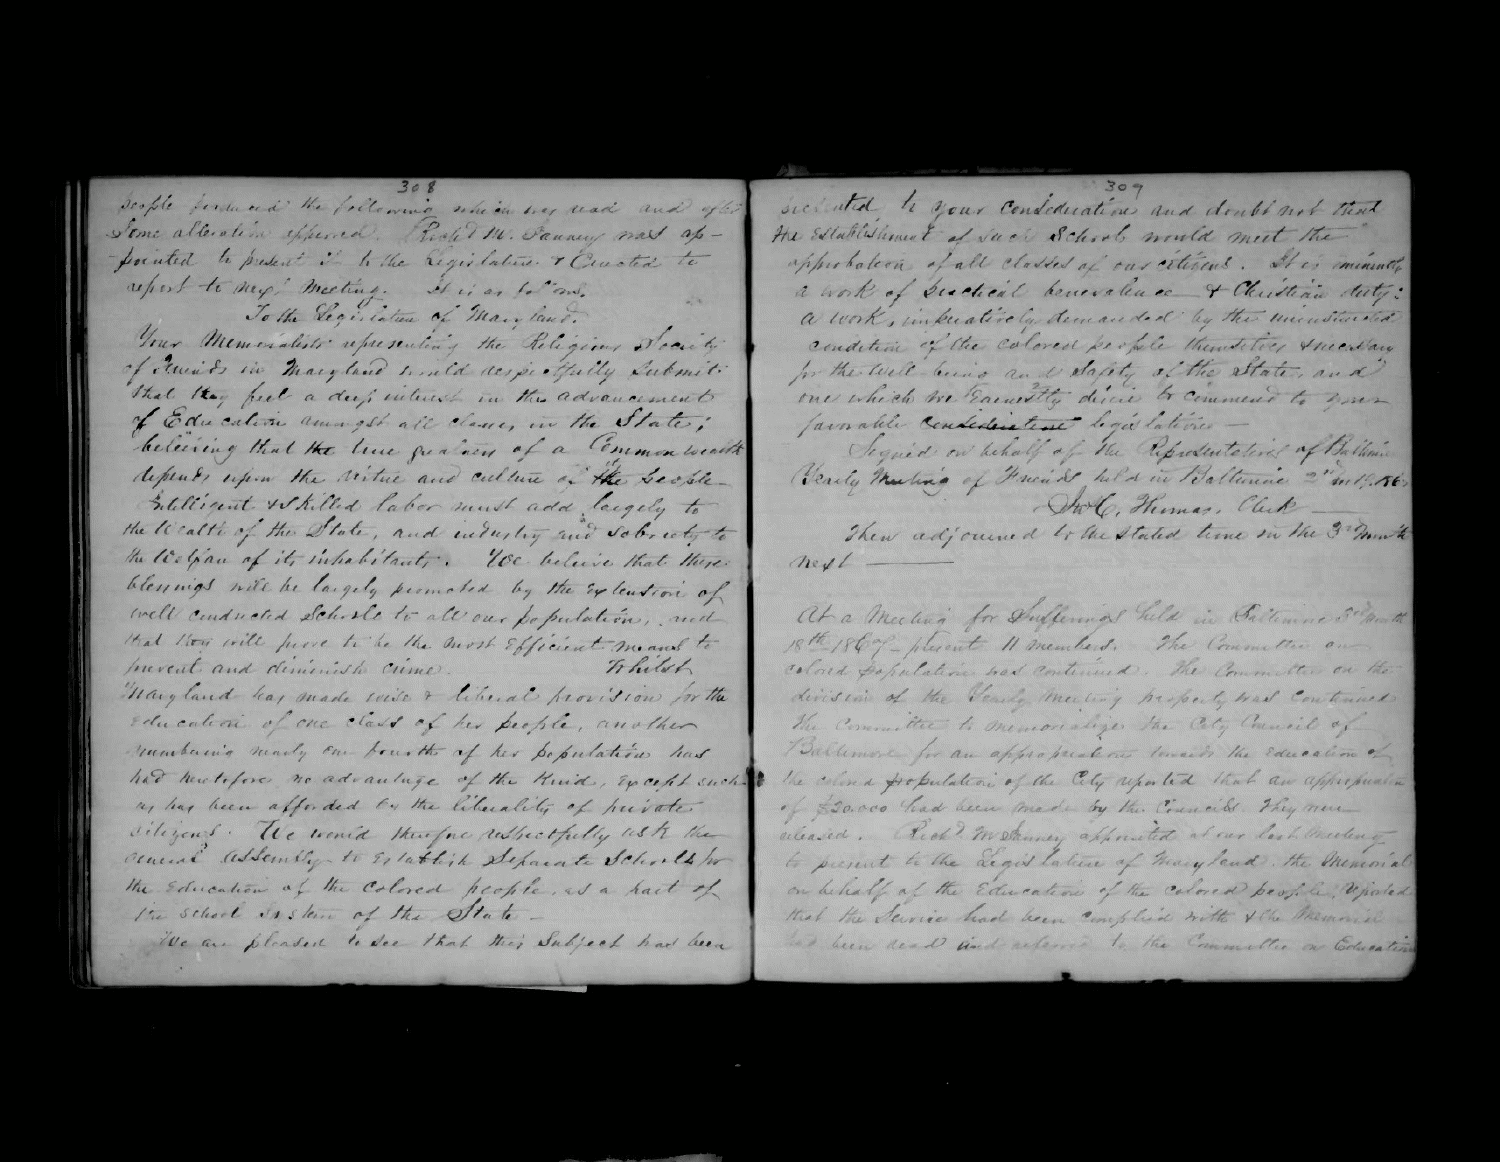 308
people produced the following which was read and after
Some alteration approved. Richd M. Janney was ap-
pointed to present it to the Legislature & Directed to
report to next Meeting. It is as follows.
To the Legislature of Maryland.
Your Memorialists representing the Religious Society
of Friends in Maryland would respectfully Submit:
that they feel a deep interest in the advancement
of Education amongst all classes in the State;
believing that the true greatness of a Commonwealth
depends upon the virtue and culture of the people
Intelligent & skilled labor must add largely to
the Wealth of the State, and industry and sobriety to
the Welfare of its inhabitants. We believe that these
blessings will be largely promoted by the extension of
well conducted Schools to all our population, and
that they will prove to be the most Efficient means to
prevent and diminish crime. Whilst
Maryland has made wise & liberal provision for the
Education of one class of her people, another
numbering nearly one fourth of her population has
had heretofore no advantage of the kind, except such
as has been afforded by the liberality of private
citizens. We would therefore respectfully ask the
General Assembly to Establish Separate Schools for
the Education of the colored people, as a part of
the school System of the State -
We are pleased to see that this Subject has been
309
presented to your consideration and doubt not that
the Establishment of such Schools would meet the
approbation of all classes of our citizens. It is eminently
a work of practical benevolence & Christian duty:
a work, imperatively demanded by the uninstructed
condition of the colored people themselves & necessary
for the well being and safety of the State, and
one which we Earnestly desire to commend to your
favorable consideration legislation -
Signed on behalf of the Representatives of Baltimore
Yearly Meeting of Friends held in Baltimore 2nd mo 19, 186
Jas C. Thomas, Clerk
Then adjourned to the stated time in the 3rd Month
next
At a Meeting for Sufferings held in Baltimore 3rd Month
18th 1867 present 11 members. The Committee on
colored population was continued. The Committee on the
division of the Yearly Meeting property was Continued
The Committee to memorialize the City Council of
Baltimore for an appropriation towards the Education of
the colored population of the City reported that an appropriation
of $20.000 had been made by the Councils. They were
released. Richd M Janney appointed at our last Meeting
to present to the Legislature of Maryland the Memorial
on behalf of the Education of the colored people, reported
that the Service had been complied with & the Memorial
had been read and referred to the Committee on Education